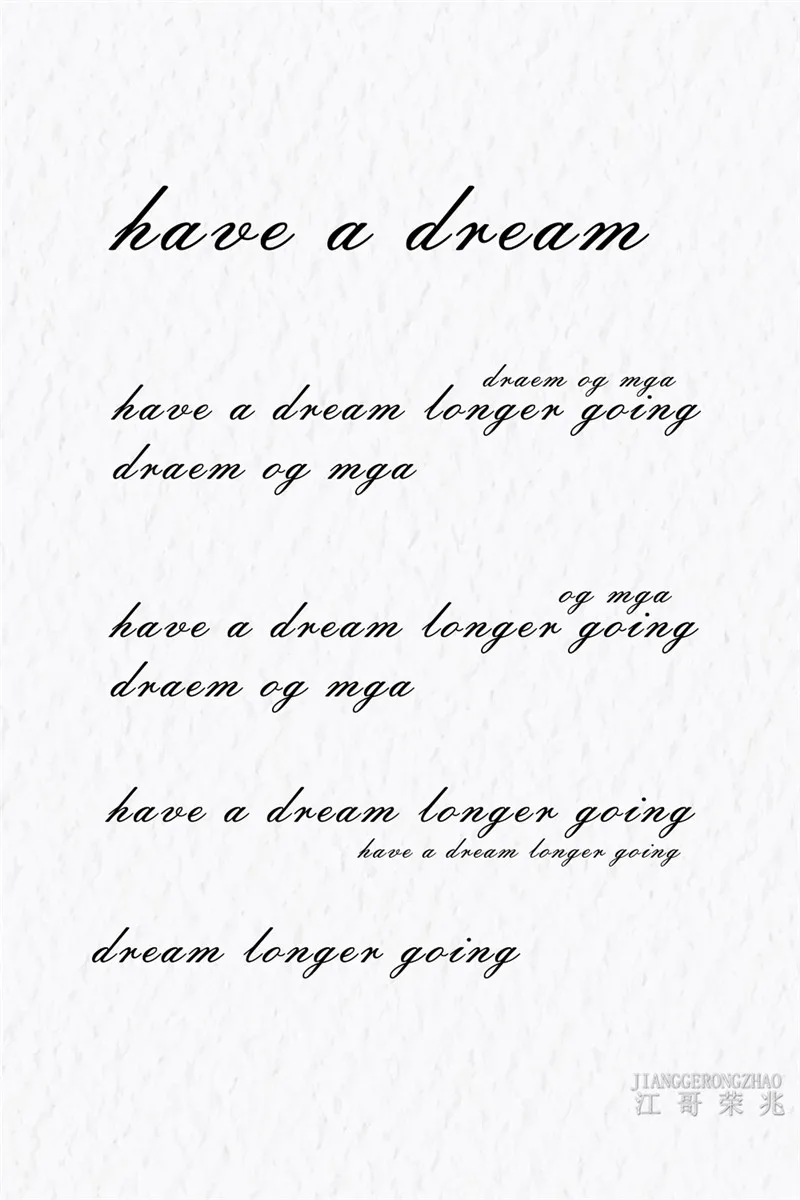 have a dream
draem og mga
have a dream longer going
draem og mga
og mga
have a dream longer going
draem og mga
have a dream longer going
have a dream longer going
dream longer going
JIANGGERONGZHAO
江哥荣兆